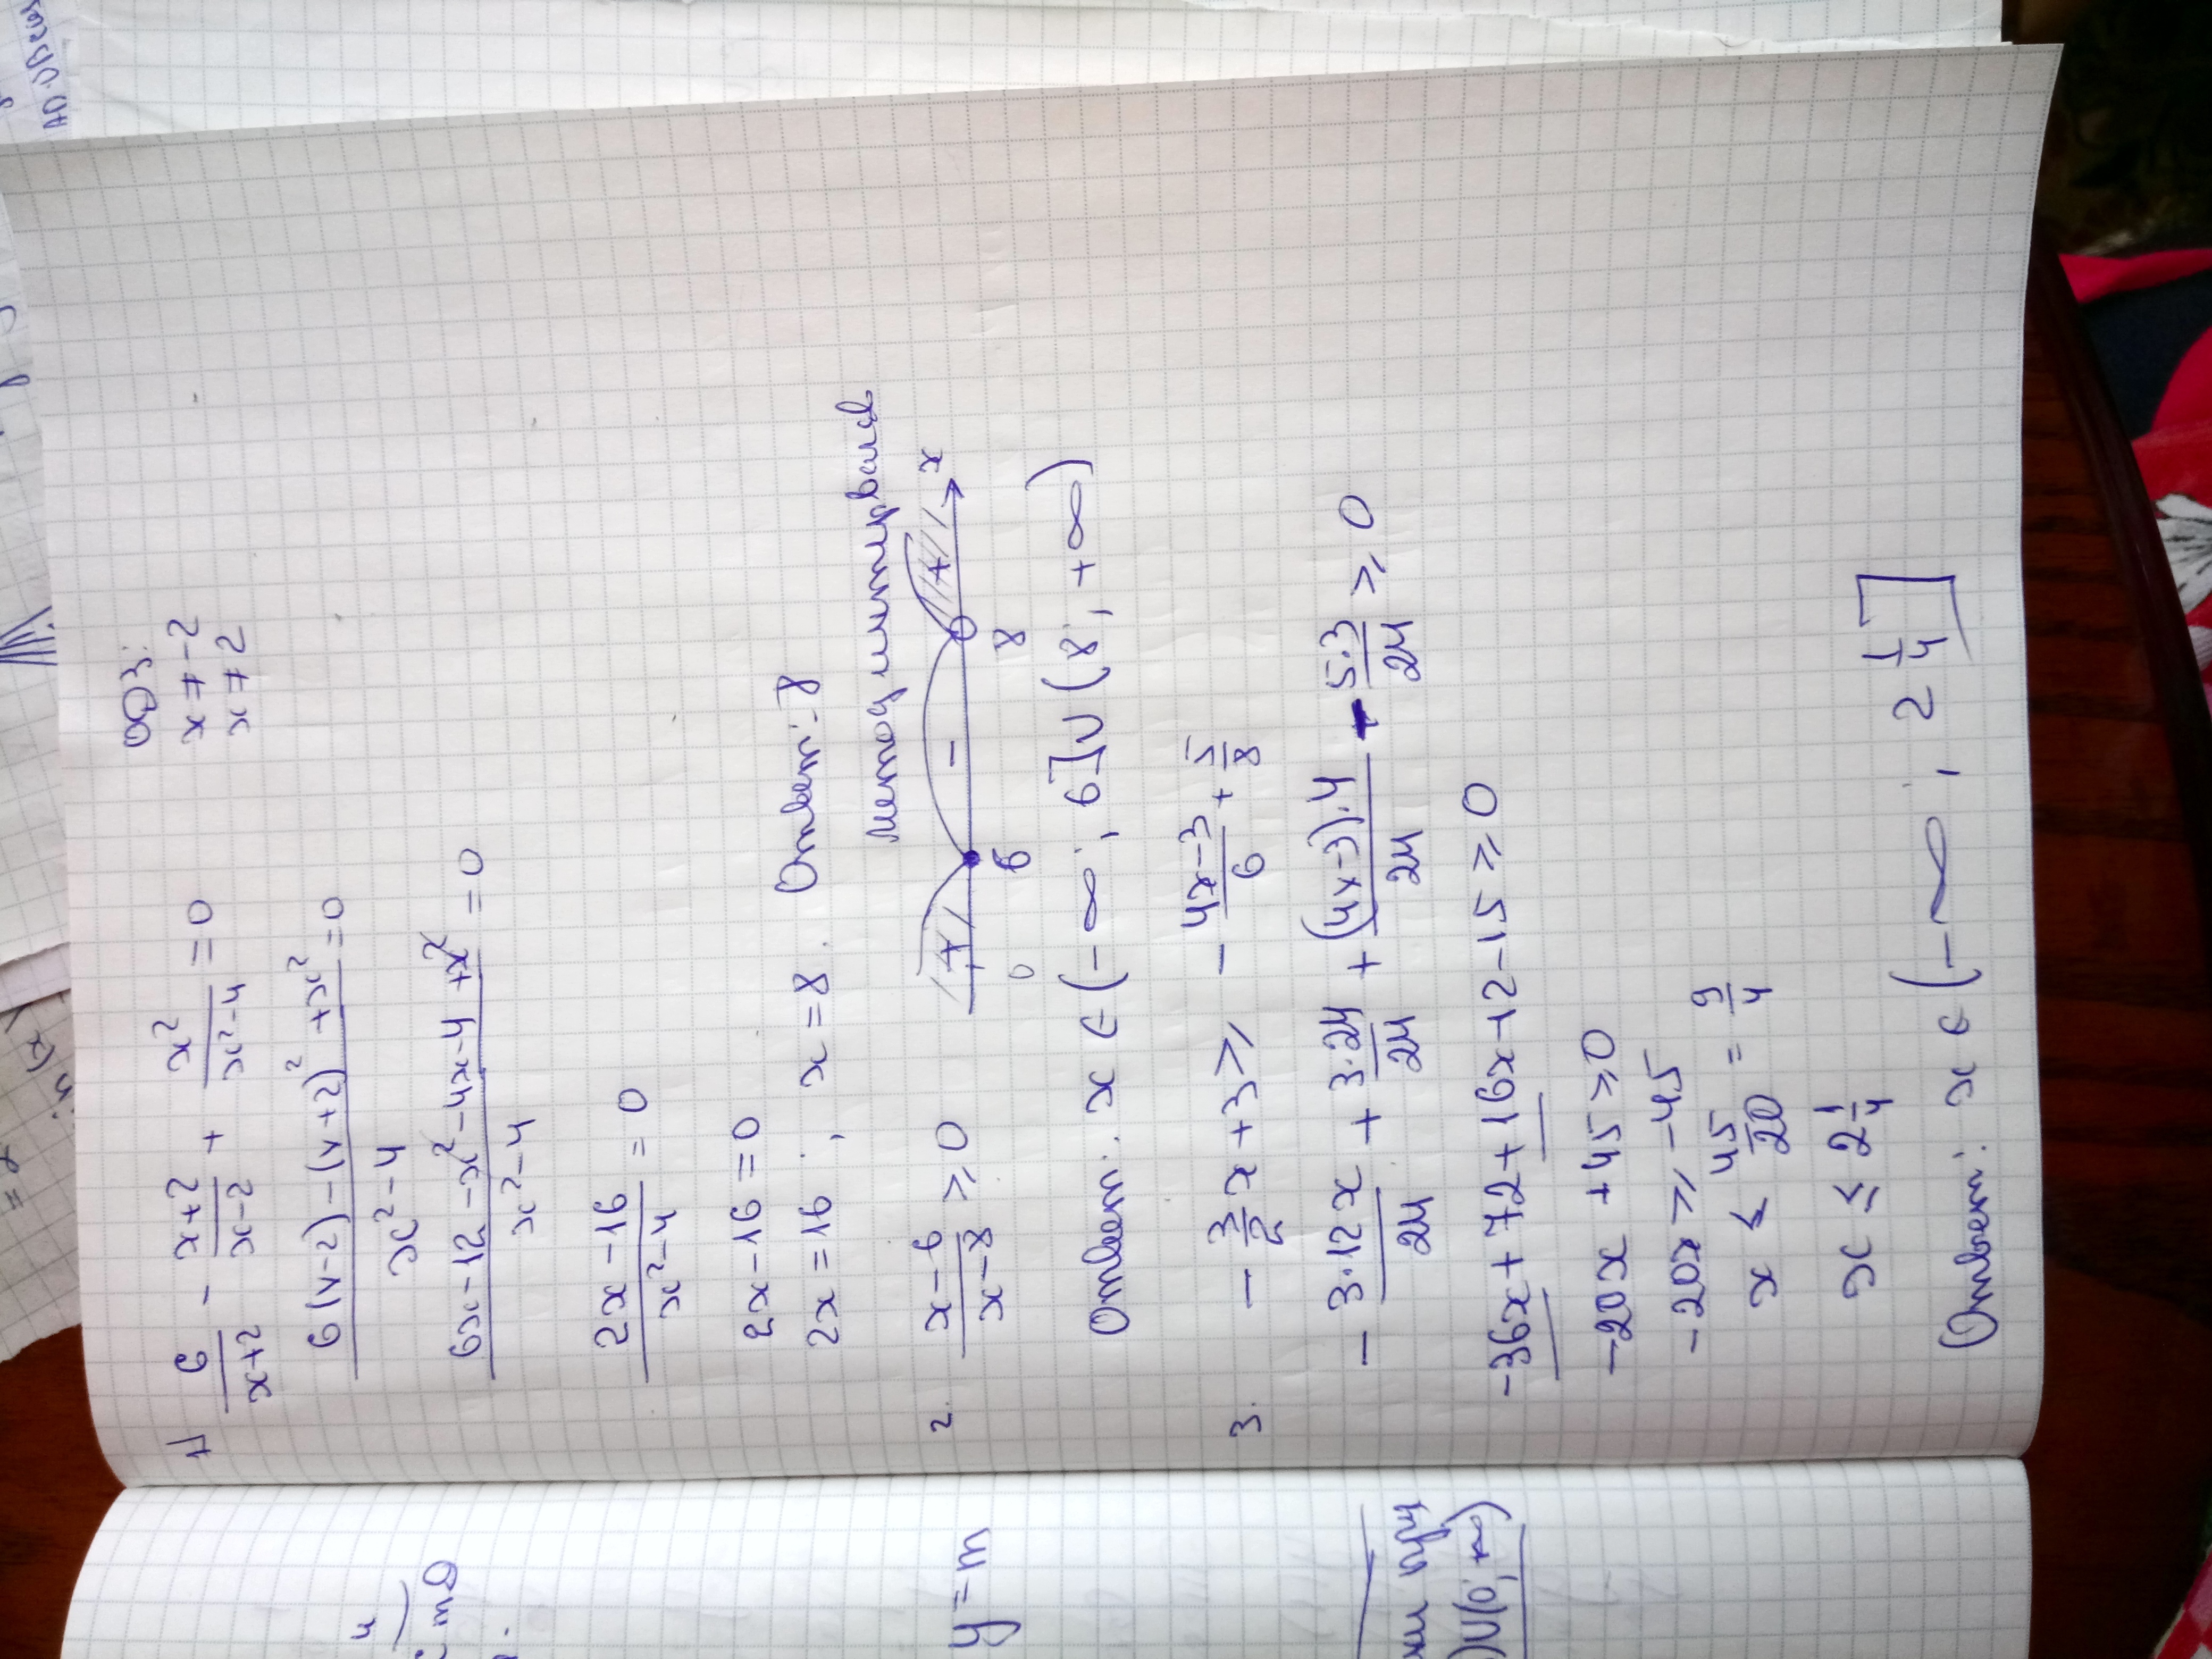 ОДЗ:
1) 6/(x+2) - (x+2)/(x-2) + x²/(x²-4) = 0
x ≠ -2
x ≠ 2
(6(x-2) - (x+2)² + x²)/(x²-4) = 0
(6x-12-x²-4x-4+x²)/(x²-4) = 0
(2x-16)/(x²-4) = 0
2x-16=0
2x=16; x=8. Ответ: 8
Метод интервалов
2. (x-6)/(x-8) ≥ 0
+ - + x
0 6 8
Ответ: x ∈ (-∞; 6] ∪ (8; +∞)
3. -3/2 x + 3 ≥ -(4x-3)/6 + 5/8
-3·12x/24 + 3·24/24 + (4x-3)·4/24 - 5·3/24 ≥ 0
-36x+72+16x-12-15 ≥ 0
-20x+45 ≥ 0
-20x ≥ -45
x ≤ 45/20 = 9/4
x ≤ 2 1/4
Ответ: x ∈ (-∞; 2 1/4]
y=m